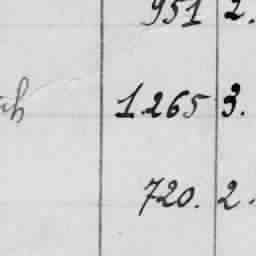 951 2.
1265 3.
720. 2.